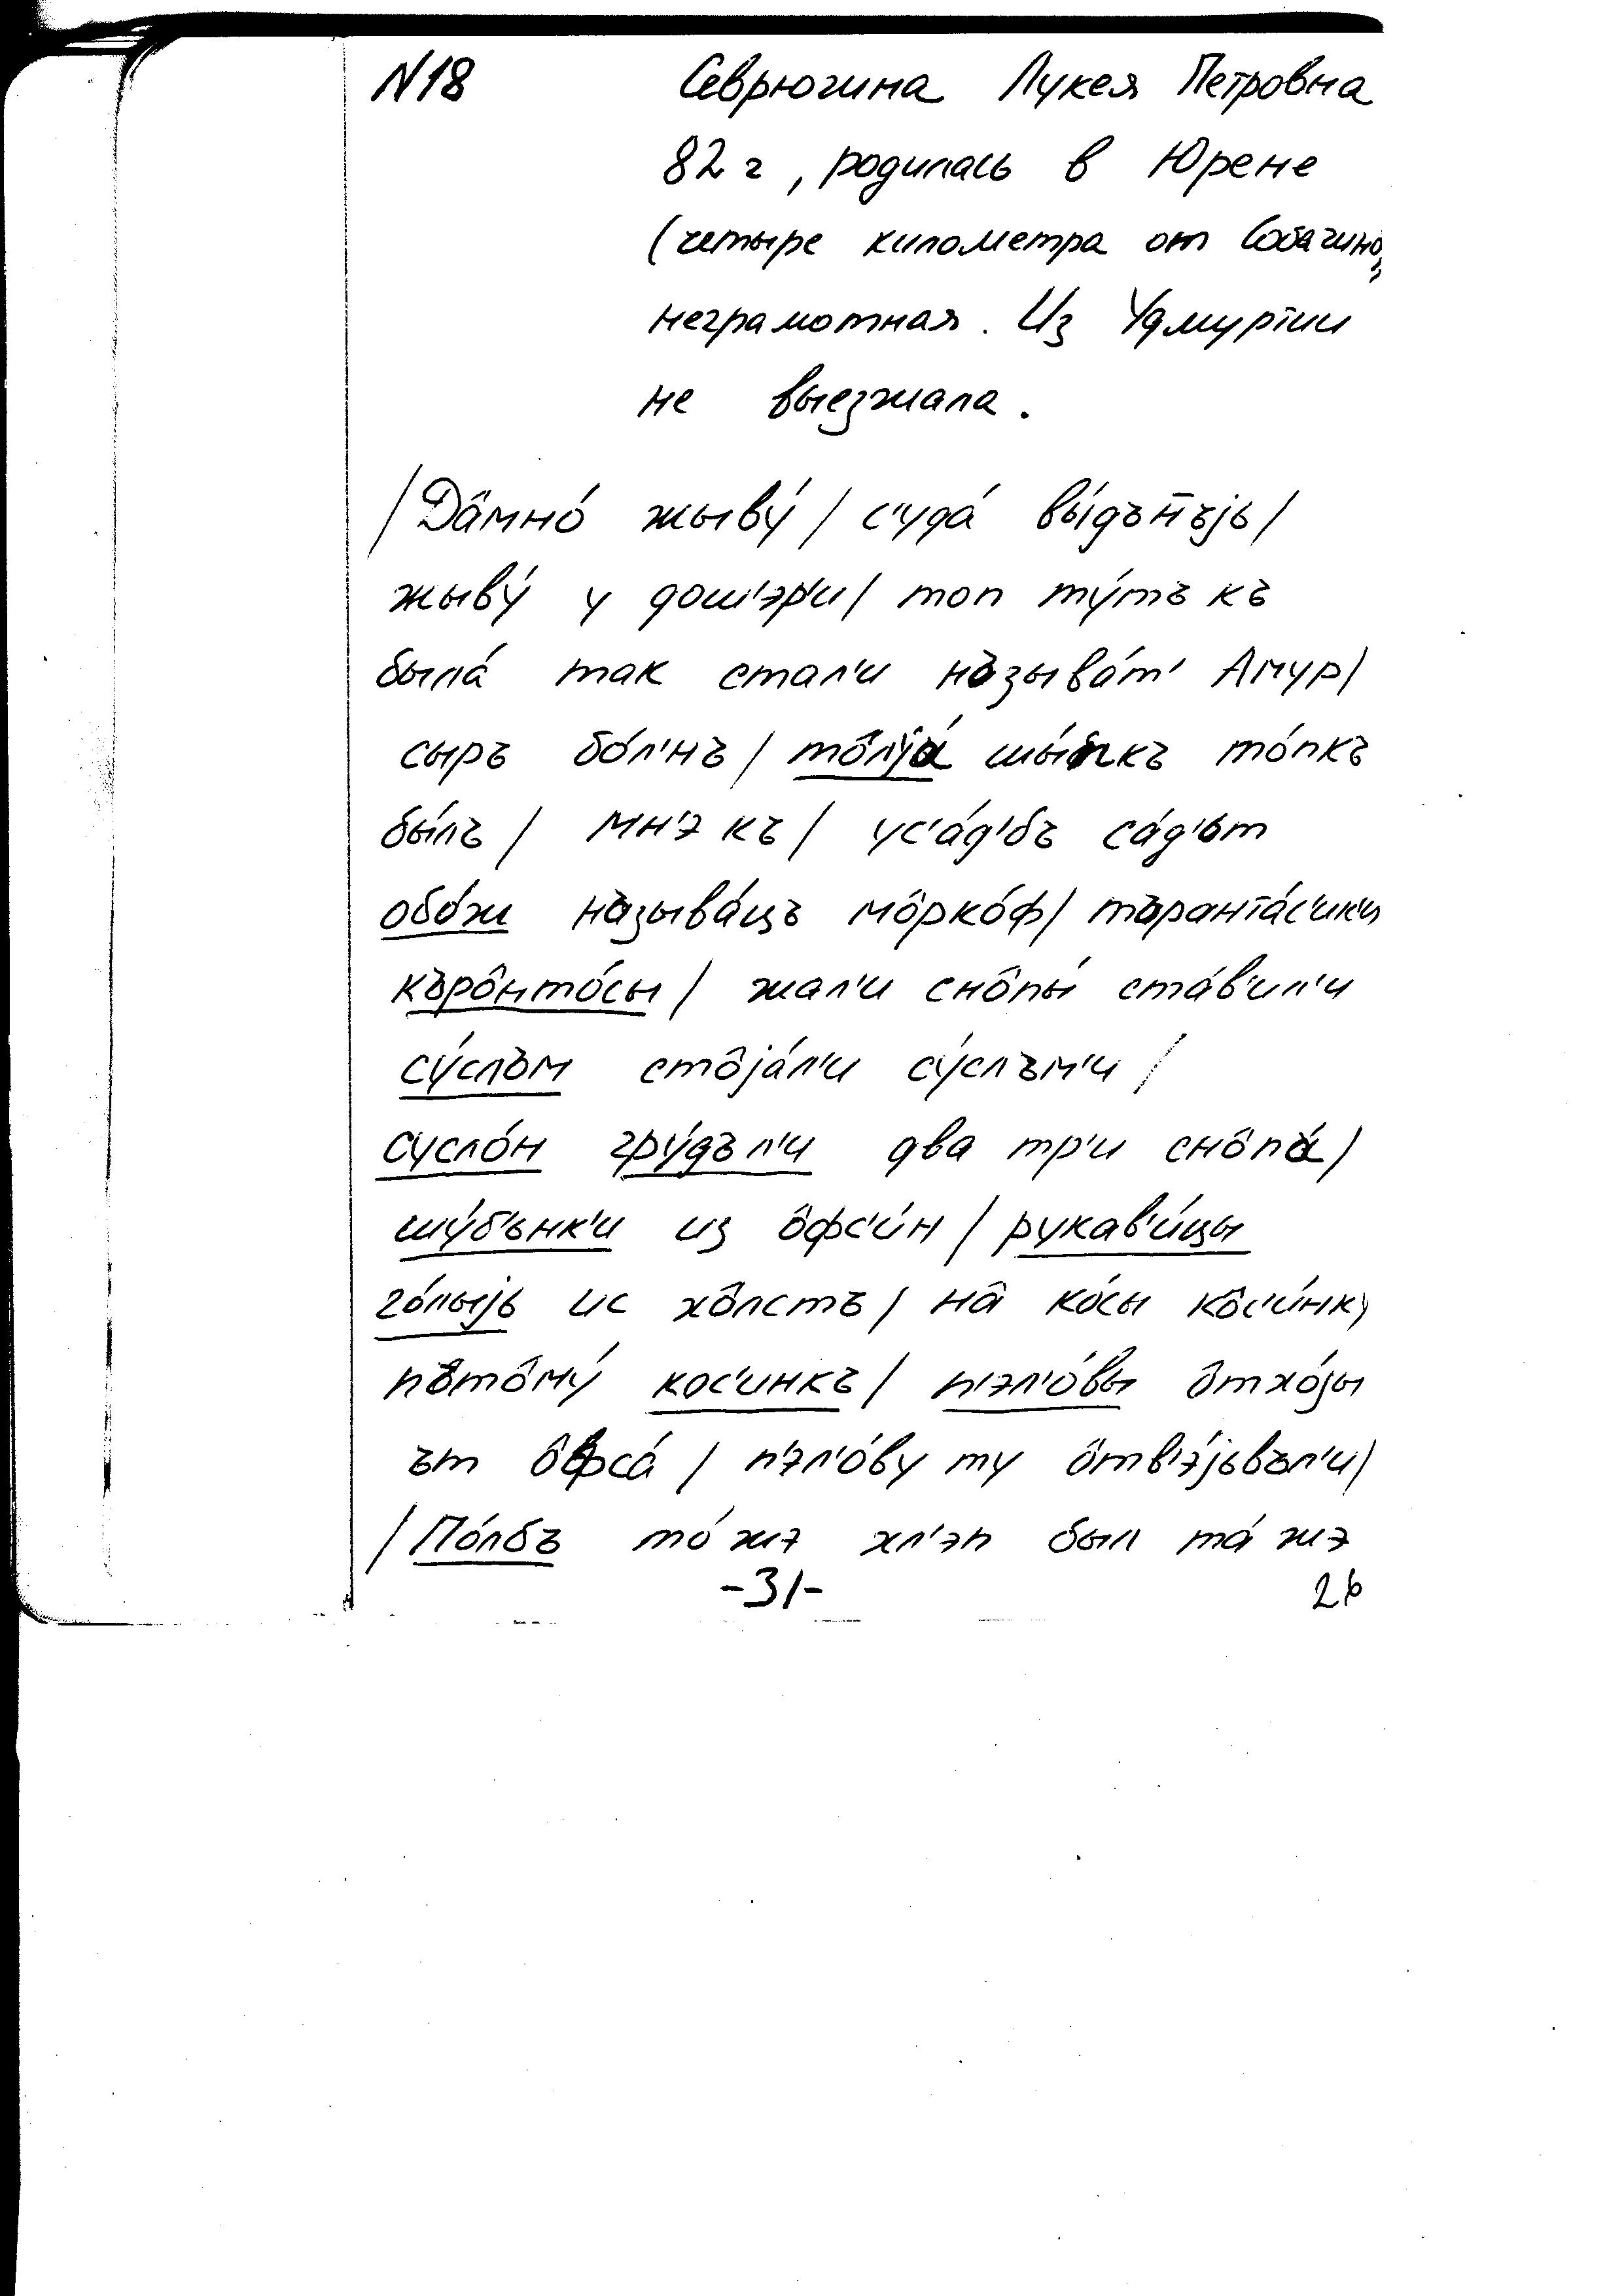 N18 Севрюгина Лукея Петровна
82 г, родилась в Юрене
(четыре километра от Собачино,
неграмотная. Из Удмуртии
не выезжала.
/Да̂мно́ жыву́/ с'уда́ вы́дън̄ъjь/
жыву́ у дош'э́р'и/ топ ту́тъ къ
была́ так стал'и нъзыва́т' Амур/
сыръ бо́л'нъ/ то̂пја́ шы́пкъ то́пкъ
бы́лъ/ мн'э къ/ ус'а́д'бъ са́д'ьт
обо́ж нъзыва́цъ мо̂рко́ф/ търанта́с'ик'и
къро̂нто́сы/ жал'и сно̂пы́ ста́в'ил'и
су́слъм сто̂jа́л'и су́слъм'и/
сусло́н гру́дъл'и два тр'и сно̂па́/
шу́б'ънк'и из о̂фс'и́н/ рукав'и́цы
го́лыjь ис хо̂лстъ/ на̂ ко́сы ко̂с'и́нку
пъто̂му́ кос'инкъ/ п'эл'о́вы о̂тхо́ды
ът о̂фса́/ п'эл'о́ву ту о̂тв'э́jьвъл'и/
/По́лбъ то́ жэ хл'эп был та́ жэ
-31- 26